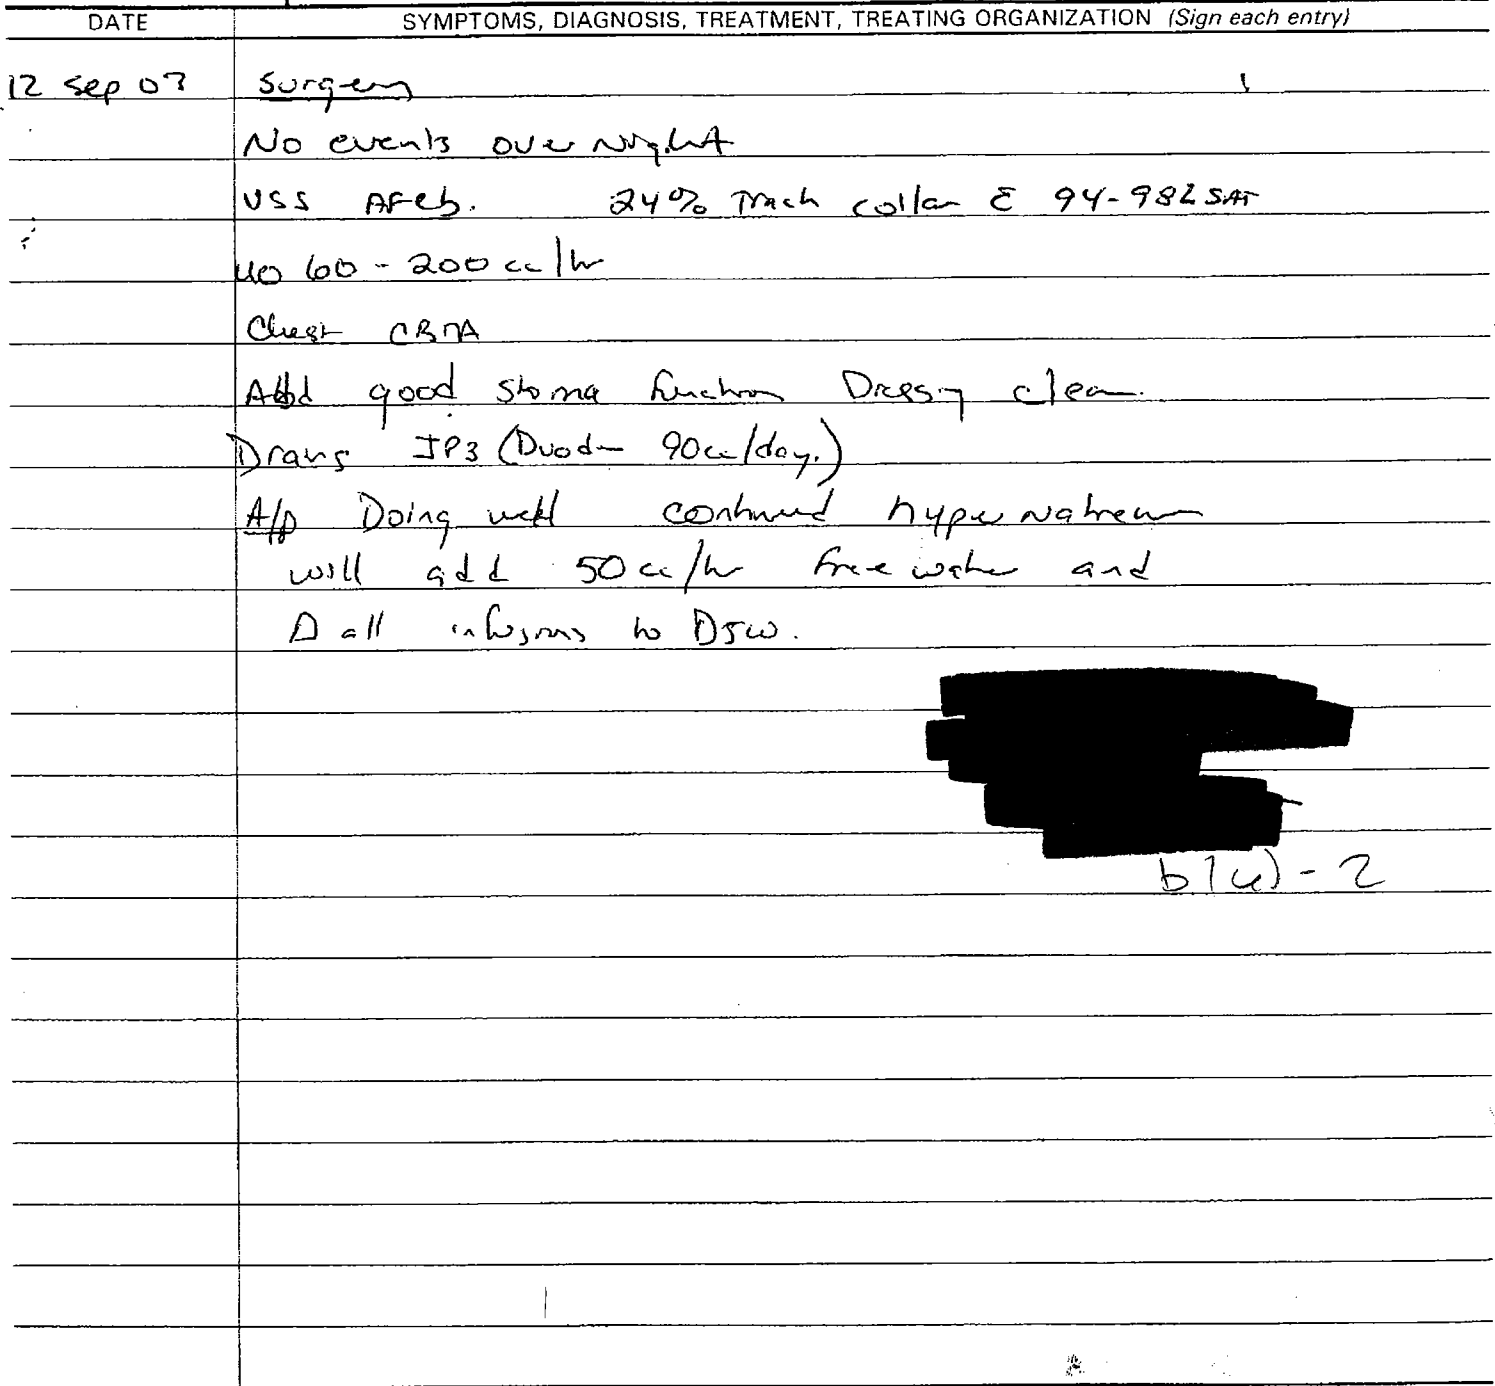 DATE SYMPTOMS, DIAGNOSIS, TREATMENT, TREATING ORGANIZATION (Sign each entry)
12 Sep 03 Surgery
No events over night
VSS AFeb. 24% Trach collar c̄ 94-98% SAT
UO 60-200 cc/hr
Chest CBTA
Abd good stoma function Dressing clean.
Drains JP3 (Duode 90cc/day.)
A/P Doing well continued hypernatremia
will add 50 cc/hr free water and
Δ all infusions to D5W.
b(6)-2